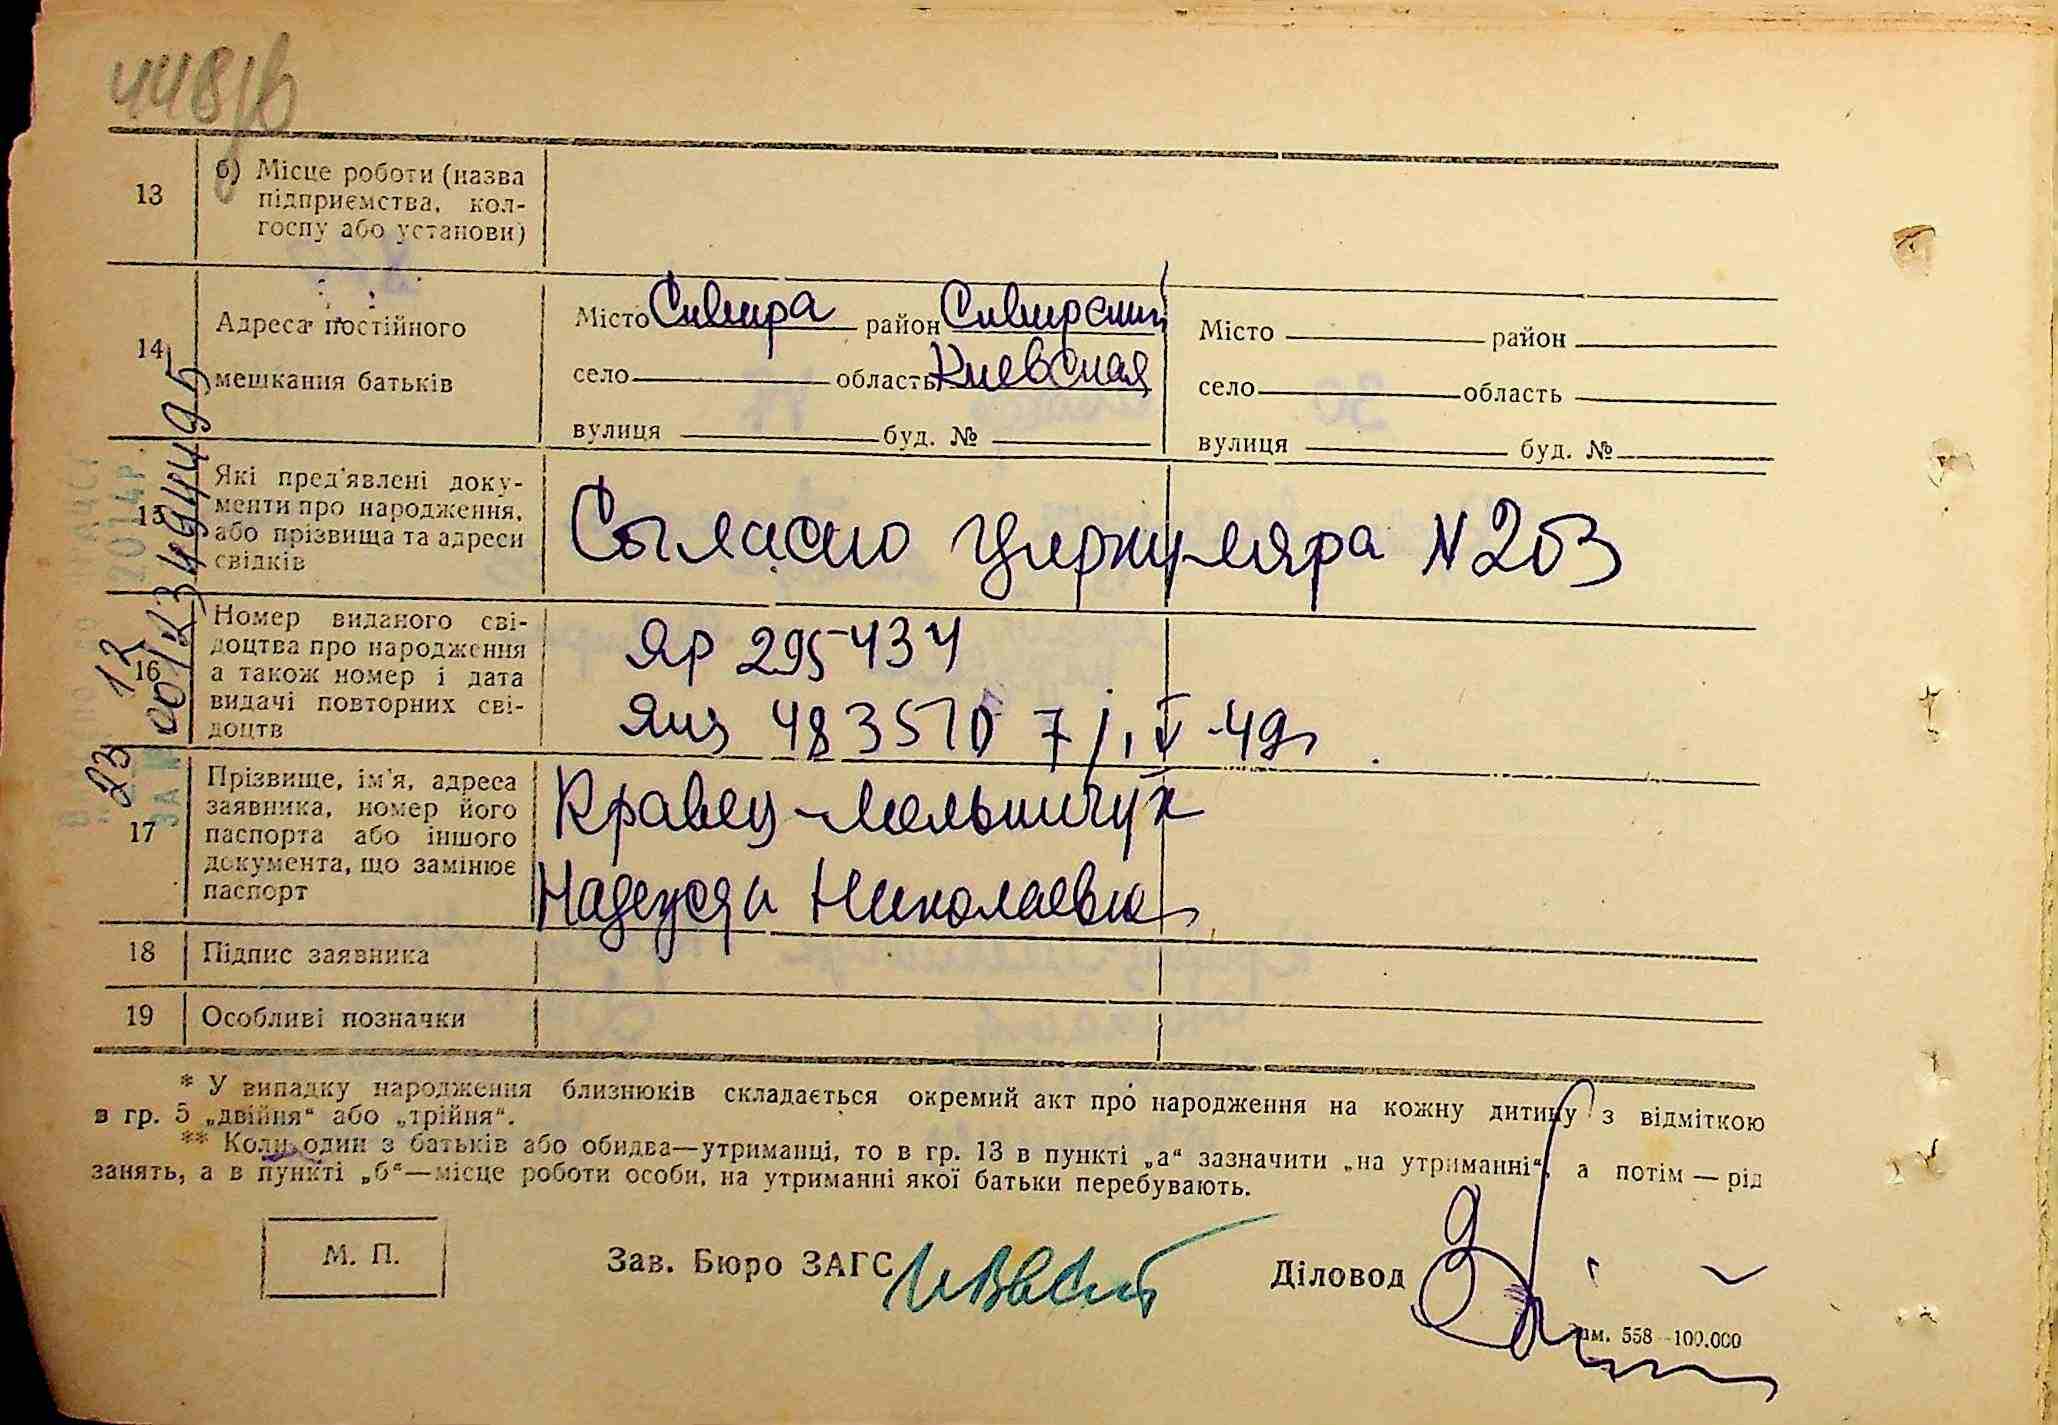 448/в
13 б) Місце роботи (назва
підприємства, кол-
госпу або установи)
14 Адреса постійного
мешкання батьків
Місто Сквира район Сквирский
село область Киевская
вулиця буд. №
Місто район
село область
вулиця буд. №
15 Які пред'явлені доку-
менти про народження,
або прізвища та адреси
свідків
Сыгласно циркуляра N 203
16 Номер виданого сві-
доцтва про народження
а також номер і дата
видачі повторних сві-
доцтв
ЯР 295434
483510 7/V-49г
17 Прізвище, ім'я, адреса
заявника, номер його
паспорта або іншого
документа, що замінює
паспорт
Кравец-Мельничук
Надежда Николаевна
18 Підпис заявника
19 Особливі позначки
* У випадку народження близнюків складається окремий акт про народження на кожну дитину з відміткою
в гр. 5 „двійня“ або „трійня“.
** Коли один з батьків або обидва—утриманці, то в гр. 13 в пункті „а“ зазначити „на утриманні“, а потім — рід
занять, а в пункті „б“—місце роботи особи, на утриманні якої батьки перебувають.
М. П.
Зав. Бюро ЗАГС
Діловод
Зам. 558—100.000